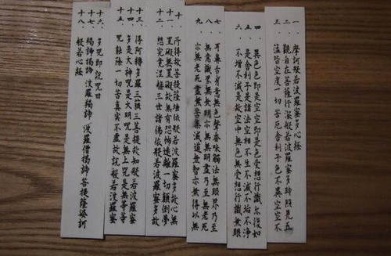 一、摩訶般若波羅蜜多心経
二、観自在菩薩行深般若波羅蜜多時照見五
三、蘊皆空度一切苦厄舎利子色不異空空不
四、異色色即是空空即是色受想行識亦復如
五、是舎利子是諸法空相不生不滅不垢不浄
六、不増不減是故空中無色無受想行識無眼
七、耳鼻舌身意無色声香味触法無眼界乃至
八、無意識界無無明亦無無明尽乃至無老死
九、亦無老死尽無苦集滅道無智亦無得以無
十、所得故菩提薩埵依般若波羅蜜多故心無
十一、罣礙無罣礙故無有恐怖遠離一切顛倒夢
十二、想究竟涅槃三世諸仏依般若波羅蜜多故
十三、得阿耨多羅三藐三菩提故知般若波羅蜜
十四、多是大神呪是大明呪是無上呪是無等等
十五、呪能除一切苦真実不虚故説般若波羅蜜
十六、多呪即説呪曰
十七、羯諦羯諦波羅羯諦波羅僧羯諦菩提薩婆訶
十八、般若心経